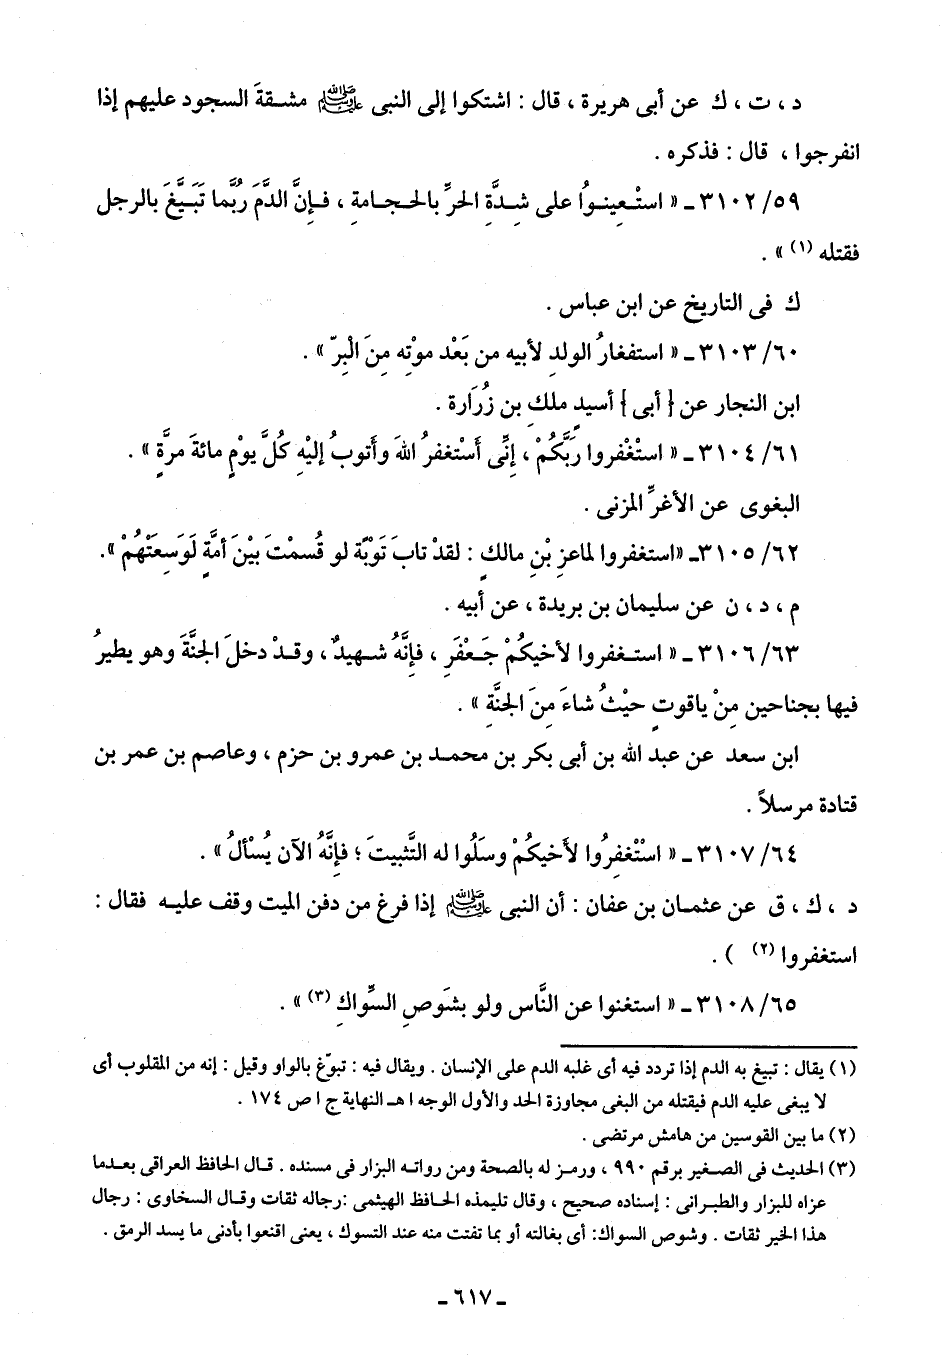 د ، ت ، ك عن أبى هريرة ، قال : اشتكوا إلى النبى ﷺ مشقةَ السجود عليهم إذا
انفرجوا ، قال : فذكره .
٣١٠٢/٥٩ ـ « استْعِينوُا على شِدَّةِ الحرِّ بالحجامةِ ، فإنَّ الدَّمَ رُبَّما تَبَيَّغَ بالرجل
فقتله (١) » .
ك فى التاريخ عن ابن عباس .
٣١٠٣/٦٠ ـ « استغفارُ الولدِ لأبيه من بَعْد موْتِه مِنَ الْبِرّ » .
ابن النجار عن { أبى } أسيدٍ ملك بن زُرَارة .
٣١٠٤/٦١ ـ « استَغْفروا رَبَّكُمْ ، إنِّى أَسْتغفرُ اللهَ وأتوبُ إليْهِ كُلَّ يوْمٍ مائةَ مرَّةٍ » .
البغوى عن الأغرِّ المزنى .
٣١٠٥/٦٢ـ «استغفروا لماعزِ بْنِ مالكٍ : لقدْ تابَ تَوْبًة لو قُسمْتَ بيْنَ أمَّةٍ لَوَسعَتْهُمْ».
م ، د ، ن عن سليمان بن بريدة ، عن أبيه .
٣١٠٦/٦٣ ـ « استغفروا لأخيكُمْ جَعْفَرِ ، فإنَّهُ شهيدٌ ، وقدْ دخلَ الجنَّةَ وهو يطيرُ
فيها بجناحين مِنْ ياقوتٍ حيْثُ شاءَ مِنَ الجنَّةِ » .
ابن سعد عن عبد الله بن أبى بكر بن محمد بن عمرو بن حزم ، وعاصم بن عمر بن
قتادة مرسلاً .
٣١٠٧/٦٤ ـ « اسْتْغفِرُوا لأَخيكُمْ وسَلُوا له التَّثبيتَ ؛ فإنَّهُ الآن يُسْألُ » .
د ، ك ، ق عن عثمان بن عفان : أن النبى ﷺ إذا فرغ من دفن الميت وقف عليه فقال :
استغفروا (٢) ) .
٣١٠٨/٦٥ ـ « استغنوا عن النَّاس ولو بشَوصِ السِّواكِ (٣) » .
(١) يقال : تبيغ به الدم إذا تردد فيه أى غلبه الدم على الإنسان . ويقال فيه : تبوّغ بالواو وقيل : إنه من المقلوب أى
لا يبغى عليه الدم فيقتله من البغى مجاوزة الحد والأول الوجه ا هـ النهاية ج ١ ص ١٧٤ .
(٢) ما بين القوسين من هامش مرتضى .
(٣) الحديث فى الصغير برقم ٩٩٠ ، ورمز له بالصحة ومن رواته البزار فى مسنده . قال الحافظ العراقى بعدما
عزاه للبزار والطبرانى : إسناده صحيح ، وقال تليمذه الحافظ الهيثمى :رجاله ثقات وقال السخاوى : رجال
هذا الخبر ثقات . وشوص السواك: أى بغالته أو بما تفتت منه عند التسوك ، يعنى اقنعوا بأدنى ما يسد الرمق .
ـ ٦١٧ ـ